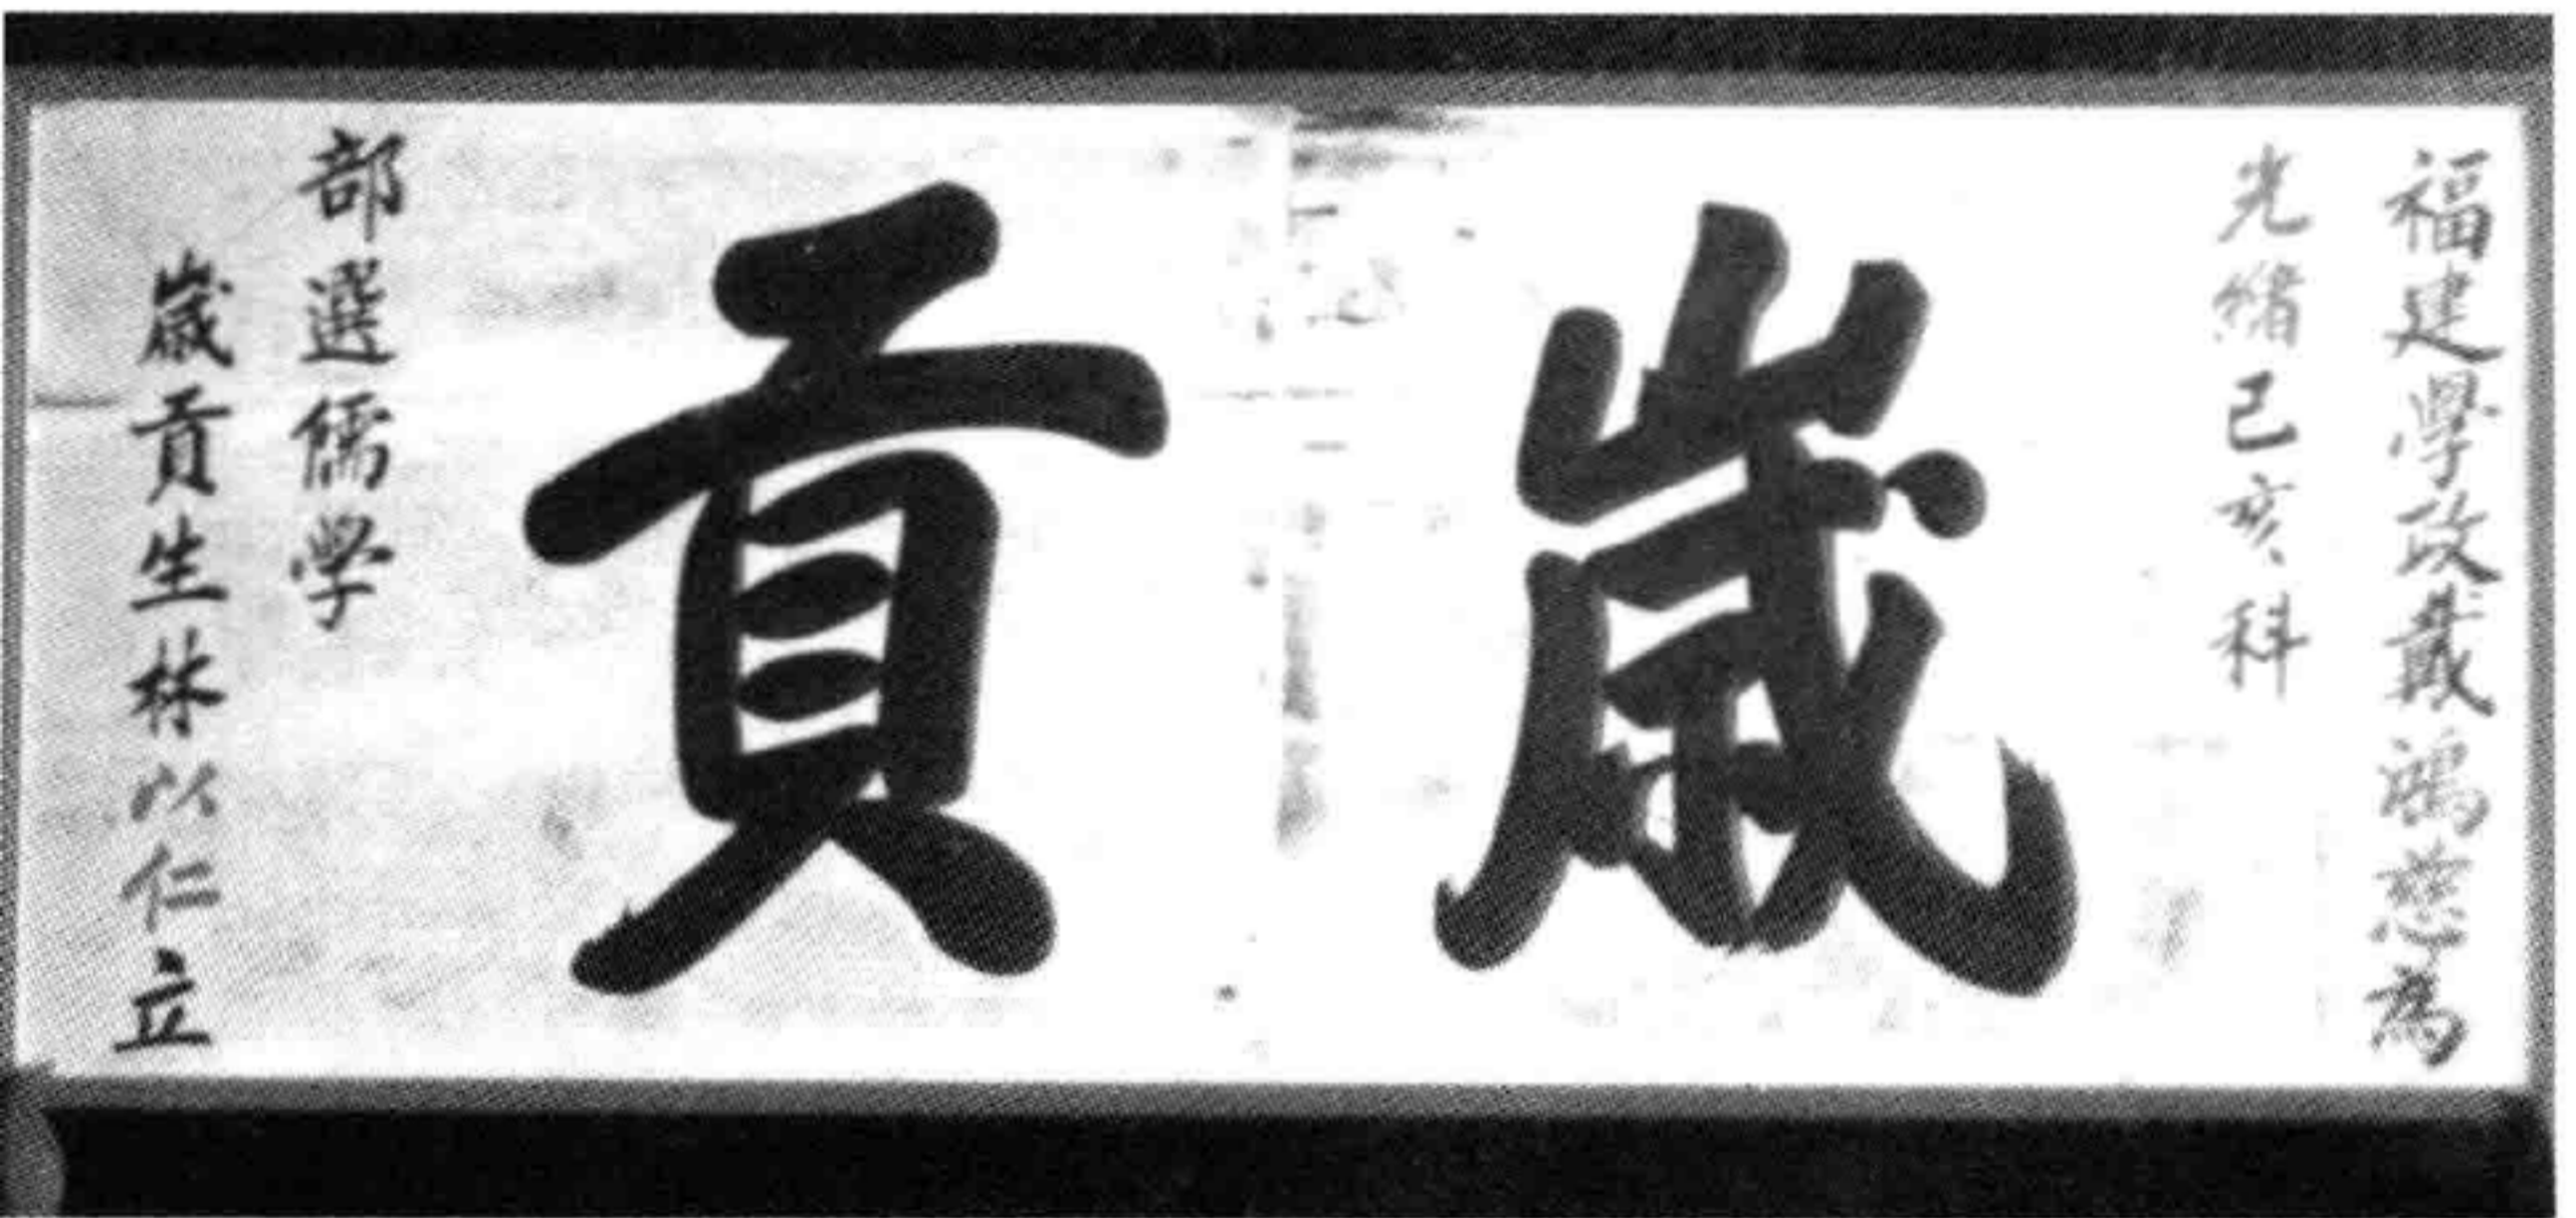 福建學政戴鴻慈為
光緒己亥科
歲貢
部選儒學
歲貢生林以仁立